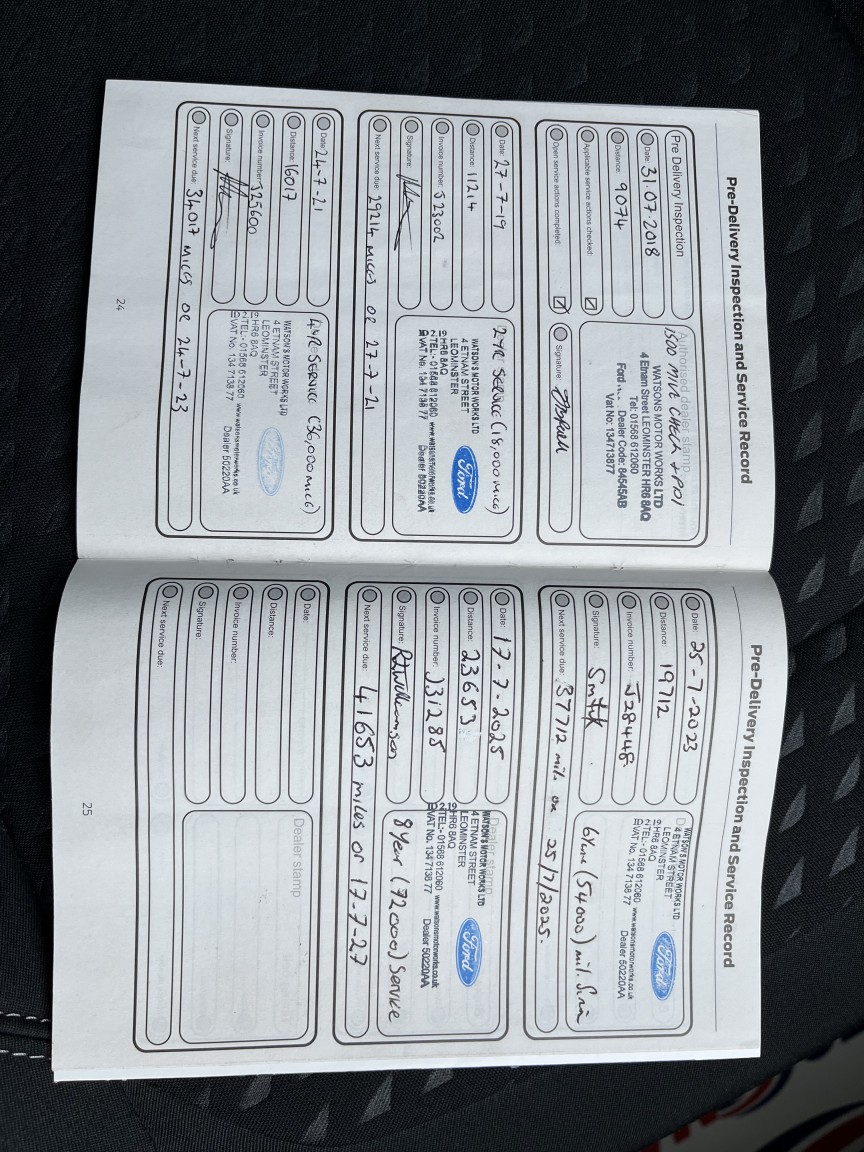 Pre-Delivery Inspection and Service Record
Pre Delivery Inspection
Date: 31.07.2018
Distance: 9074
Applicable service actions checked:
Open service actions completed:
Authorised dealer stamp
1500 mile check + PDI
WATSONS MOTOR WORKS LTD
4 Etnam Street LEOMINSTER HR6 8AQ
Tel: 01568 612060
Ford Dealer Code: 84545AB
Vat No: 134713877
Signature:
Date: 27-7-19
Distance: 11214
Invoice number: J23002
Signature:
Next service due: 29214 miles or 27-7-21
2 YR SERVICE (18,000 miles)
WATSON'S MOTOR WORKS LTD
4 ETNAM STREET
LEOMINSTER
HR6 8AQ
TEL:- 01568 612060 www.watsonsmotorworks.co.uk
VAT No. 134 7138 77 Dealer 50220AA
Ford
Date: 24-7-21
Distance: 16017
Invoice number: J25600
Signature:
Next service due: 34017 miles or 24-7-23
4 YR SERVICE (36,000 miles)
WATSON'S MOTOR WORKS LTD
4 ETNAM STREET
LEOMINSTER
HR6 8AQ
TEL:- 01568 612060 www.watsonsmotorworks.co.uk
VAT No. 134 7138 77 Dealer 50220AA
Ford
24
Pre-Delivery Inspection and Service Record
Date: 25-7-2023
Distance: 19712
Invoice number: J28448
Signature:
Next service due: 37712 mile or 25/7/2025.
WATSON'S MOTOR WORKS LTD
4 ETNAM STREET
LEOMINSTER
HR6 8AQ
TEL:- 01568 612060 www.watsonsmotorworks.co.uk
VAT No. 134 7138 77 Dealer 50220AA
Ford
6 Year (54000)
Date: 17-7-2025
Distance: 23653
Invoice number: J31285
Signature:
Next service due: 41653 miles or 17-7-27
Dealer stamp
WATSON'S MOTOR WORKS LTD
4 ETNAM STREET
LEOMINSTER
HR6 8AQ
TEL:- 01568 612060 www.watsonsmotorworks.co.uk
VAT No. 134 7138 77 Dealer 50220AA
Ford
8 Year (72000) Service
Date:
Distance:
Invoice number:
Signature:
Next service due:
Dealer stamp
25